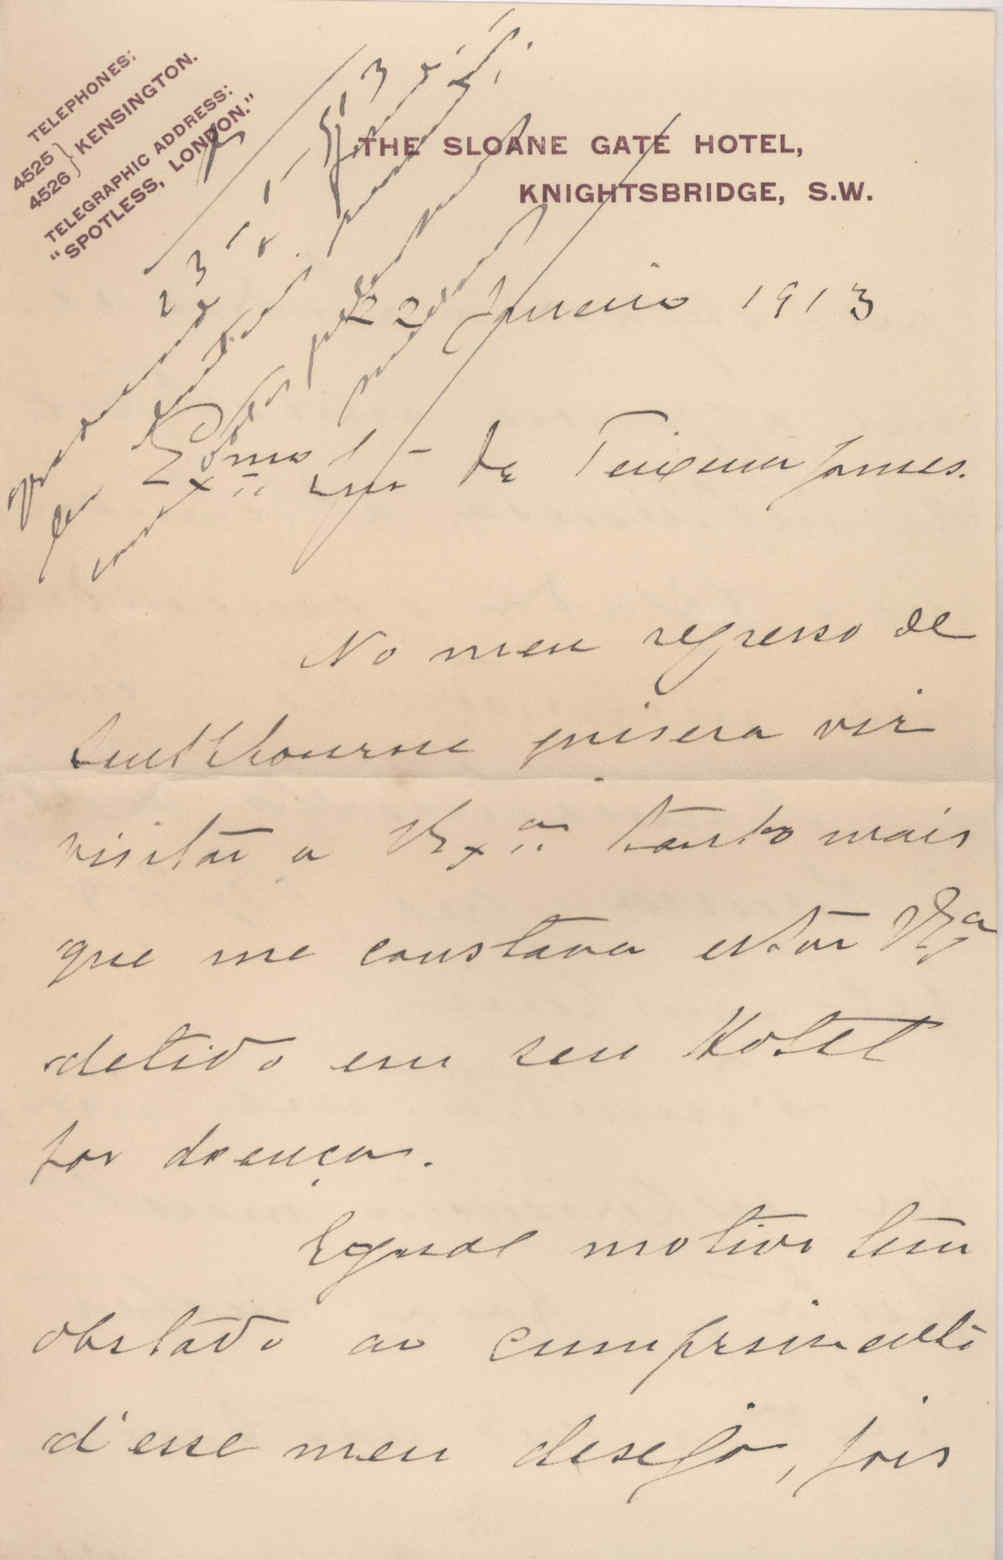 TELEPHONES:
4525
4526 } KENSINGTON.
TELEGRAPHIC ADDRESS:
"SPOTLESS, LONDON."
THE SLOANE GATE HOTEL,
KNIGHTSBRIDGE, S.W.
23-1-1913
22 Janeiro 1913
Exmo Snr Dr Teixeira Gomes.
No meu regresso de
quisera vir
visitar a VExa tanto mais
que me constava estar VExa
detido em seu Hotel
por doença.
Egual motivo tem
obstado ao cumprimento
d'esse meu desejo, pois